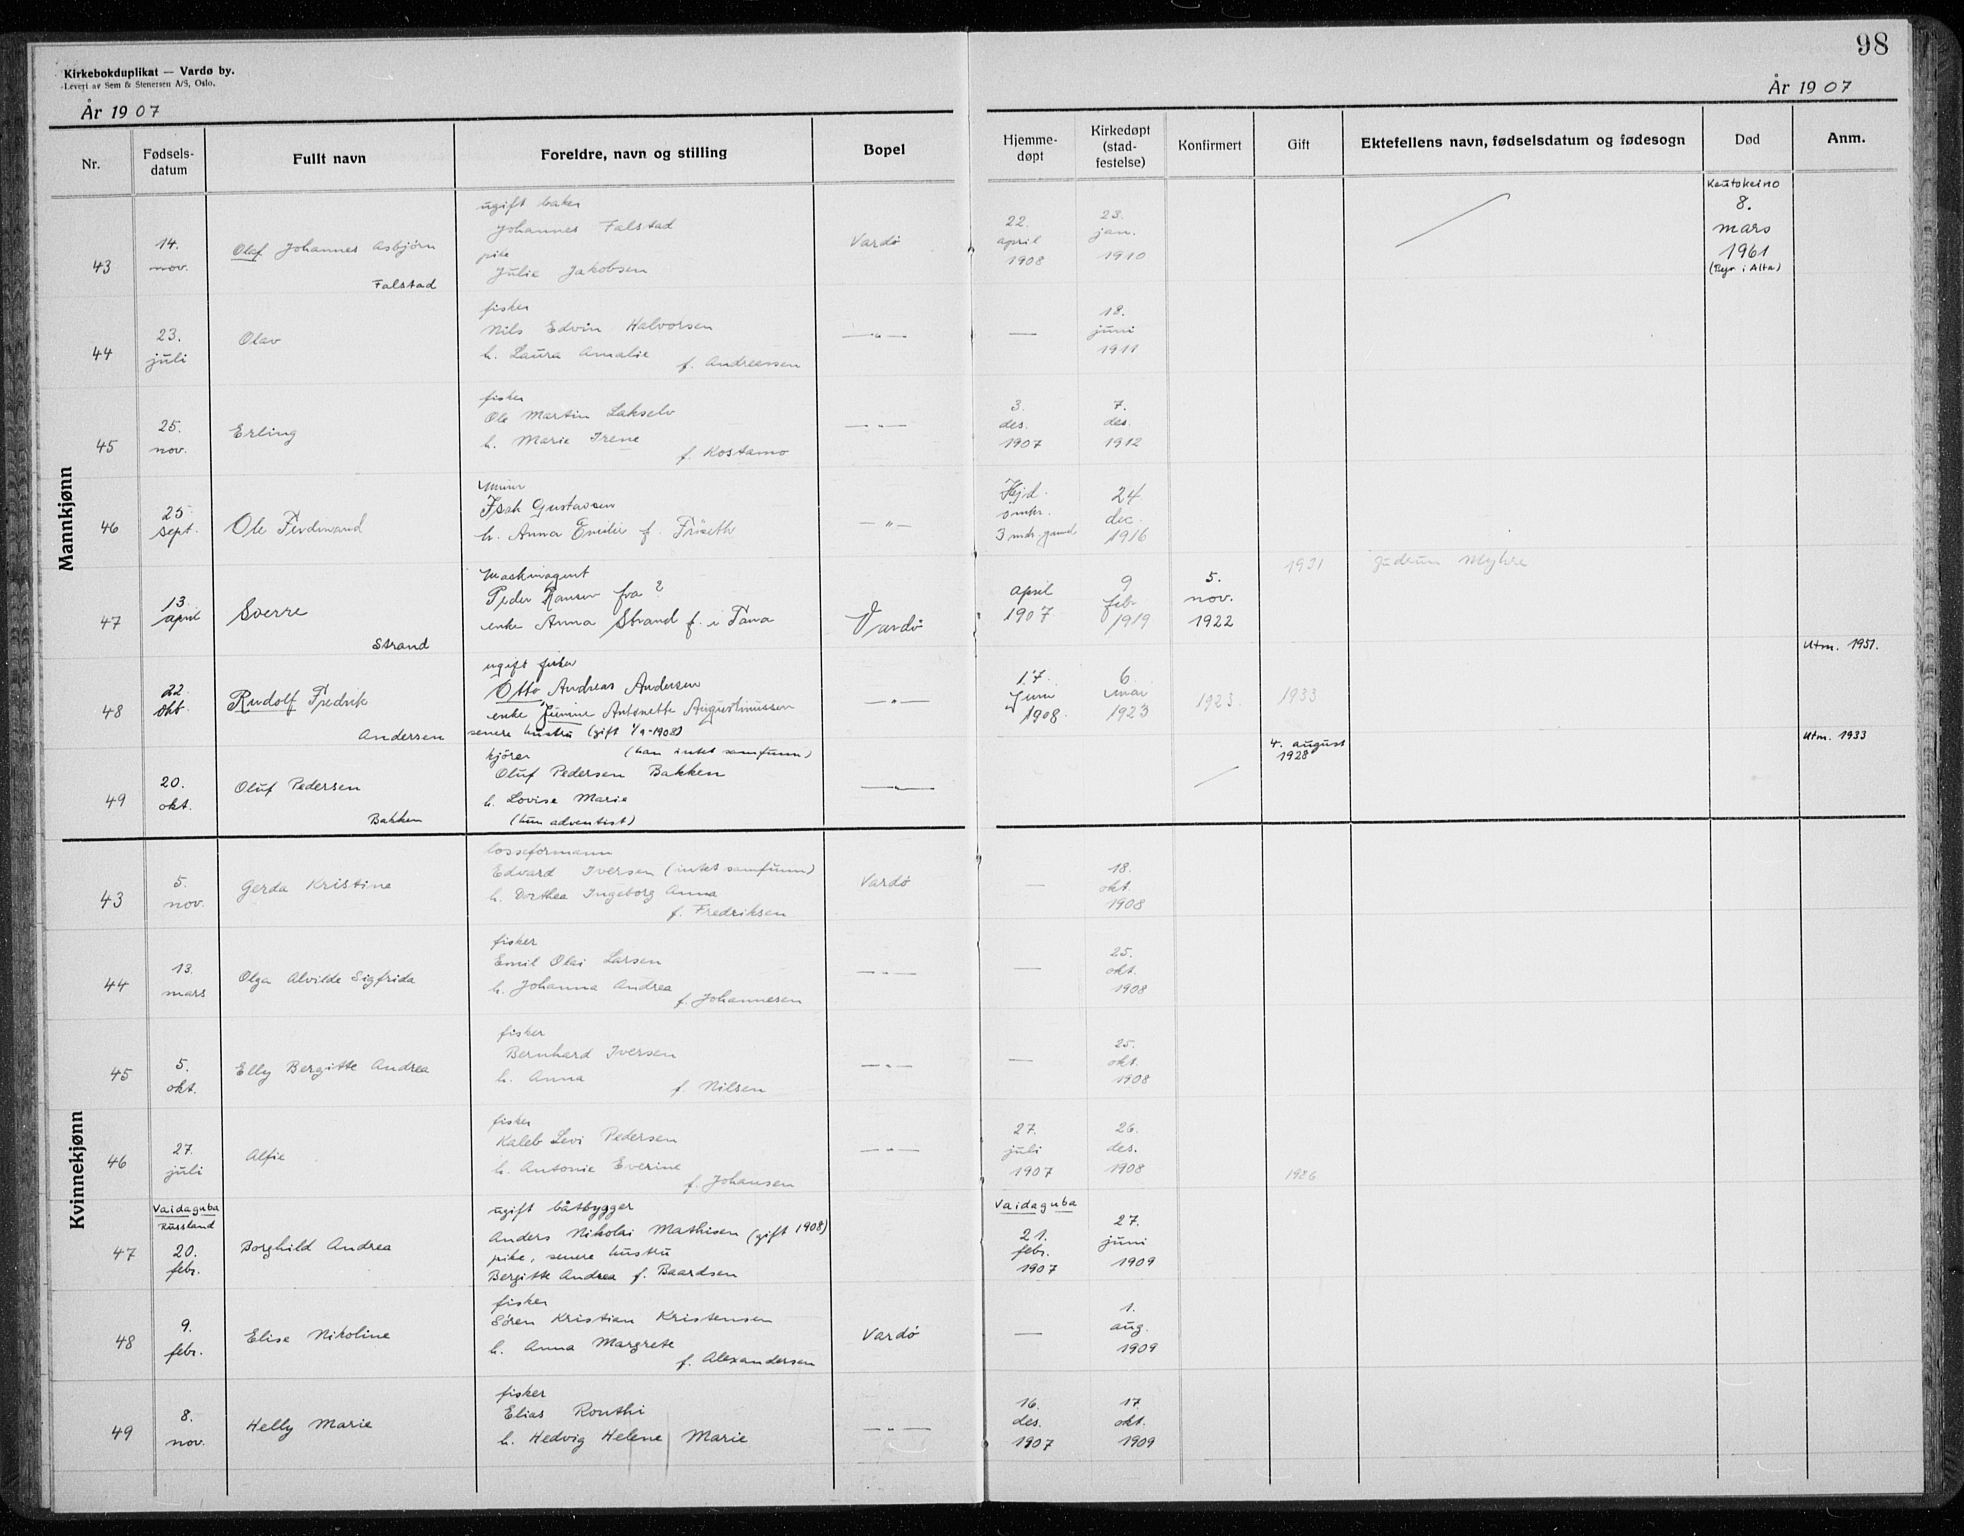 98
Kirkebokduplikat — Vardø by.
Levert av Sem & Stenersen A/S, Oslo.
År 1907
År 1907
Nr.
Fødsels-
datum
Fullt navn
Foreldre, navn og stilling
Bopel
Hjemme-
døpt
Kirkedøpt
(stad-
festelse)
Konfirmert
Gift
Ektefellens navn, fødselsdatum og fødesogn
Død
Anm.
Mannkjønn
43
14.
nov.
Olaf Johannes Asbjørn
Falstad
ugift baker
Johannes Falstad
pike
Julie Jakobsen
Vardø
22.
april
1908
23.
jan.
1910
Kautokeino
8.
mars
1961
(Byr. i Alta)
44
23.
juli
Olav
fisker
Nils Edvin Halvorsen
h. Laura Amalie
f. Andreassen
—"—
—
18.
juni
1911
45
25.
nov.
Erling
fisker
Ole Martin Lakselv
h. Marie Irene
f. Kostamo
—"—
3.
des.
1907
7.
des.
1912
46
25
sept.
Ole Ferdinand
Isak Gustavsen
h. Anna Emilie f. Fröseth
—"—
Hjd.
omkr.
3 mdr. gaml
24
dec.
1916
47
13
april
Sverre
Strand
Maskinagent
Peder Hansen fra ?
enke Anna Strand f. i Tana
Vardø
april
1907
9
febr
1919
5.
nov.
1922
1931
Gudrun Myhre
48
22.
okt.
Rudolf Fredrik
Andersen
ugift fisker
Otto Andreas Andersen
enke Jumine Antonette Augustinussen
senere hustru (gift 1/9-1908)
—"—
17.
Juni
1908.
6.
mai
1923
1923
1933
Utm. 1951.
49
20.
okt.
Oluf Pedersen
Bakken
kjører (han intet samfunn)
Oluf Pedersen Bakken
h. Lovise Marie
(hun adventist)
—"—
4. august
1928
Utm. 1933
Kvinnekjønn
43
5.
nov.
Gerda Kristine
losseformann
Edvard Iversen (intet samfunn)
h. Dorthea Ingeborg Anna
f. Fredriksen
Vardø
—
18.
okt.
1908
44
13.
mars
Olga Alvilde Sigfrida
fisker
Emil Olai Larsen
h. Johanna Andrea
f. Johannesen
—"—
—
25.
okt.
1908
45
5.
okt.
Elly Bergitte Andrea
fisker
Bernhard Iversen
h. Anna
f. Nilsen
—"—
—
25.
okt.
1908
46
27.
juli
Alfie
fisker
Kaleb Levi Pedersen
h. Antonie Everine
f. Johansen
—"—
27.
juli
1907
26.
des.
1908
1926
47
Vaidaguba
Russland
20.
febr.
Borghild Andrea
ugift båtbygger
Anders Nikolai Mathisen (gift 1908)
pike, senere hustru
Bergitte Andrea f. Baardsen
Vaidaguba
21.
febr.
1907
27.
juni
1909
48
9.
febr.
Elise Nikoline
fisker
Sören Kristian Kristensen
h. Anna Margrete
f. Alexandersen
Vardø
—
1.
aug.
1909
49
8.
nov.
Helly Marie
fisker
Elias Routhi
h. Hedvig Helene Marie
—"—
16.
des.
1907
17.
okt.
1909